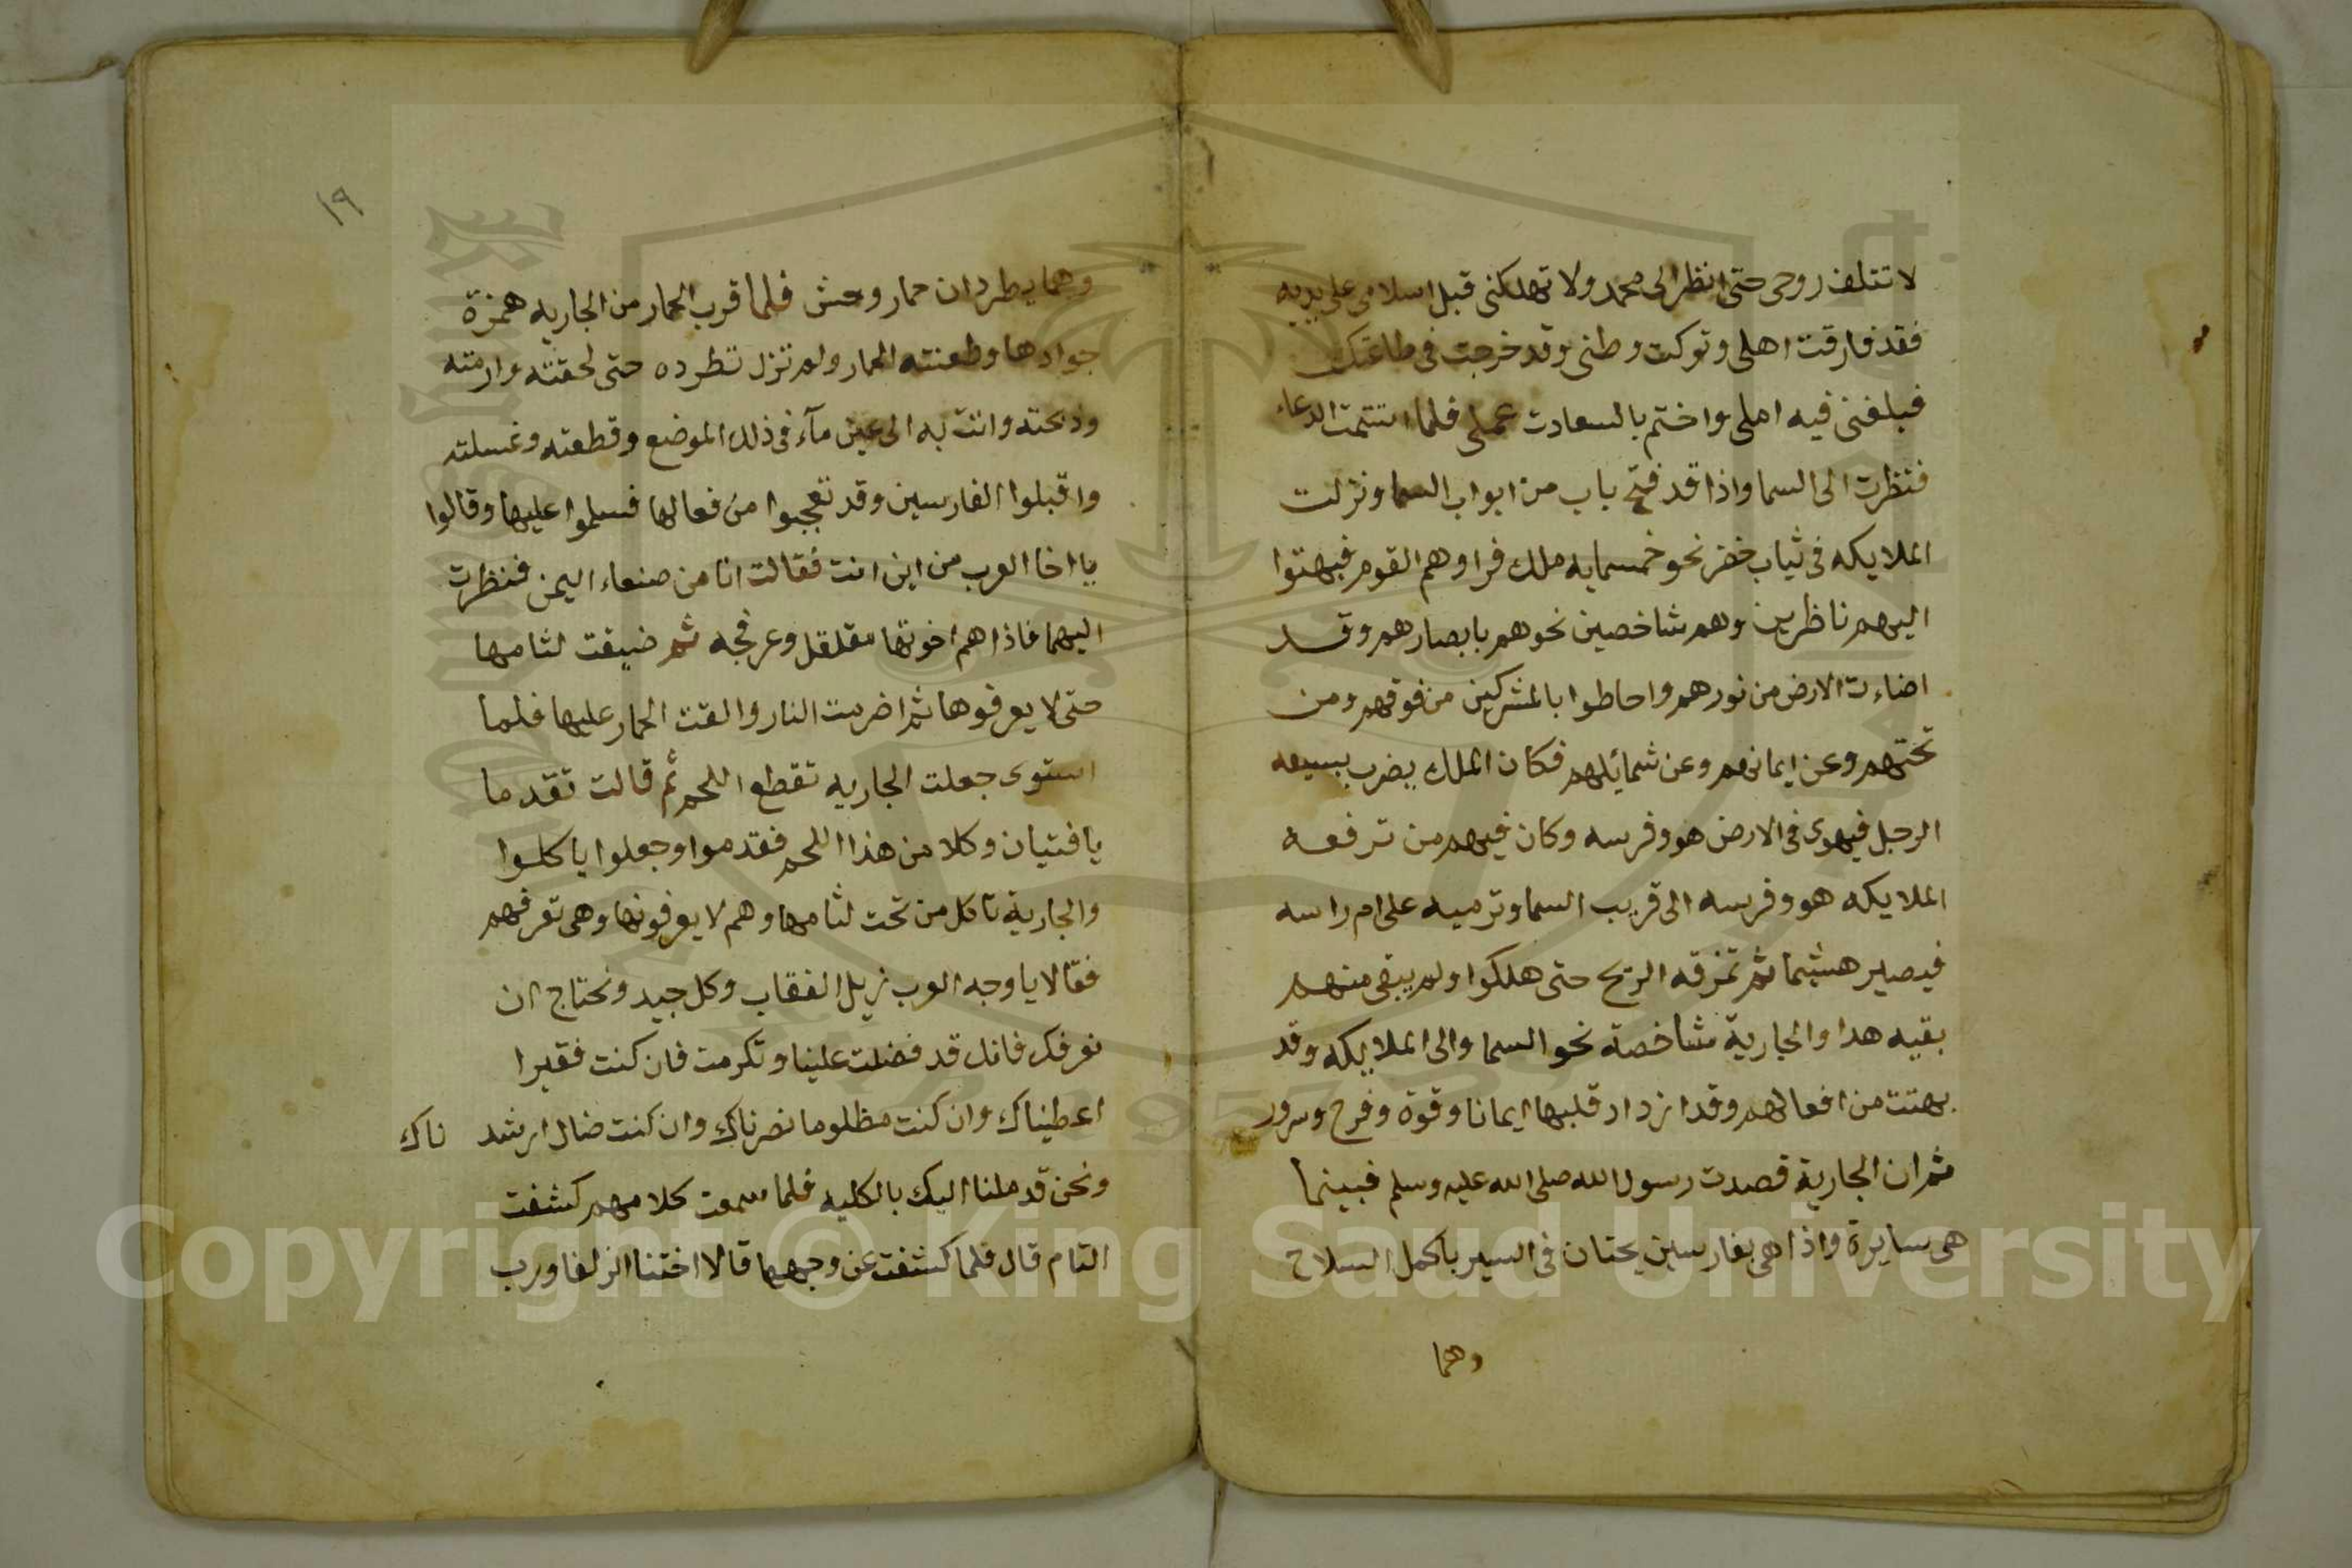 لا تتلف روحى حتى انظر الى محمد ولا تهلكنى قبل اسلامى على يديه
فقد فارقت اهلى وتركت وطنى وقد خرجت فى طاعتك
فبلغنى فيه املى واختم بالسعادت عملى فلما استتمت الدعاء
فنظرت الى السما واذا قد فتح باب من ابواب السما ونزلت
الملايكه فى ثياب خضر نحو خمسمايه ملك فراوهم القوم فبهتوا
اليهم ناظرين وهم شاخصين نحوهم بابصارهم وقد
اضاءت الارض من نورهم واحاطوا بالمشركين من فوقهم ومن
تحتهم وعن ايمانهم وعن شمائلهم فكان الملك يضرب بسيفه
الرجل فيهوى فى الارض هو وفرسه وكان فيهم من ترفعه
الملايكه هو وفرسه الى قريب السما وترميه على ام راسه
فيصير هشيما ثم تمزقه الريح حتى هلكوا ولم يبقى منهم
بقيه هدا والجارية شاخصة نحو السما والى الملاييكه وقد
بهتت من افعالهم وقد ازداد قلبها ايمانا وقوة وفرح وسرور
ثم ان الجارية قصدت رسول الله صلى الله عليه وسلم فبينما
هى سايرة واذا هى بفارسين يحتان فى السير باكمل السلاح
وهما
١٩
وهما يطردان حمار وحش فلما قرب الحمار من الجاريه همزة
جوادها وطعنته الحمار ولم تزل تطرده حتى لحقته وارمته
وذبحته واتت به الى عين مآء فى ذلك الموضع وقطعته وغسلته
واقبلوا الفارسين وقد تعجبوا من فعالها فسلموا عليها وقالوا
يا اخا العرب من اين انت فقالت انا من صنعاء اليمن فنظرت
اليهما فاذا هم اخوتها مقلقل وعرفجه ثم ضيقت لثامها
حتى لا يعرفوها ثم اضرمت النار والقت الحمار عليها فلما
استوى جعلت الجاريه تقطع اللحم ثم قالت تقدما
يا فتيان وكلا من هذا اللحم فقدموا وجعلوا ياكلوا
والجارية تاكل من تحت لثامها وهم لا يعرفونها وهى تعرفهم
فقالا يا وجه العرب زيل الفقاب وكل جيد ونحتاج ان
نعرفك فانك قد فضلت علينا وتكرمت فان كنت فقيرا
اعطيناك وان كنت مظلوما نصرناك وان كنت ضال ارشد ناك
ونحن قد ملنا اليك بالكليه فلما سمعت كلامهم كشفت
التام قال فلما كشفت عن وجهها قالا اختنا الزلفا ورب
Copyright © King Saud University